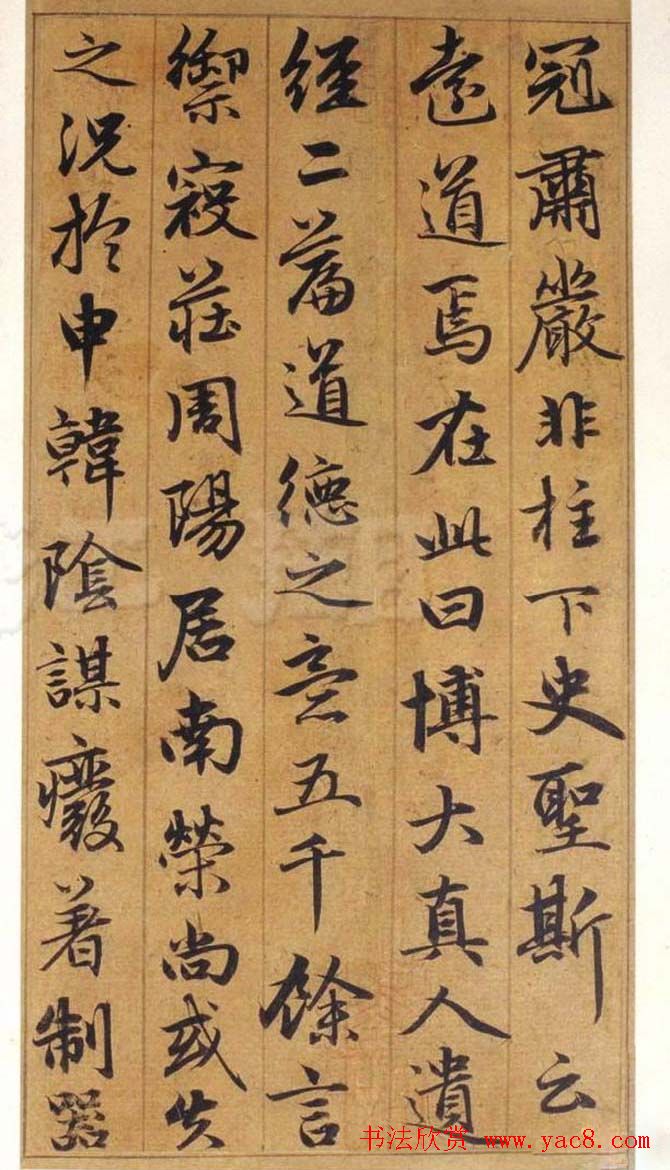 冠肅嚴非柱下史聖斯云
遠道焉在此曰博大真人遺
經二篇道德之意五千餘言
禦寇莊周陽居南榮尚或失
之況於申韓陰謀癈著制器
书法欣赏 www.yac8.com